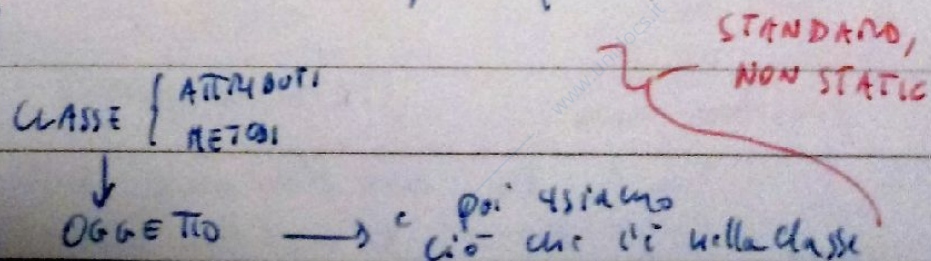 STANDARD,
NON STATIC
CLASSE { ATTRIBUTI
METODI
↓
OGGETTO → e poi usiamo
ciò che c'è nella classe